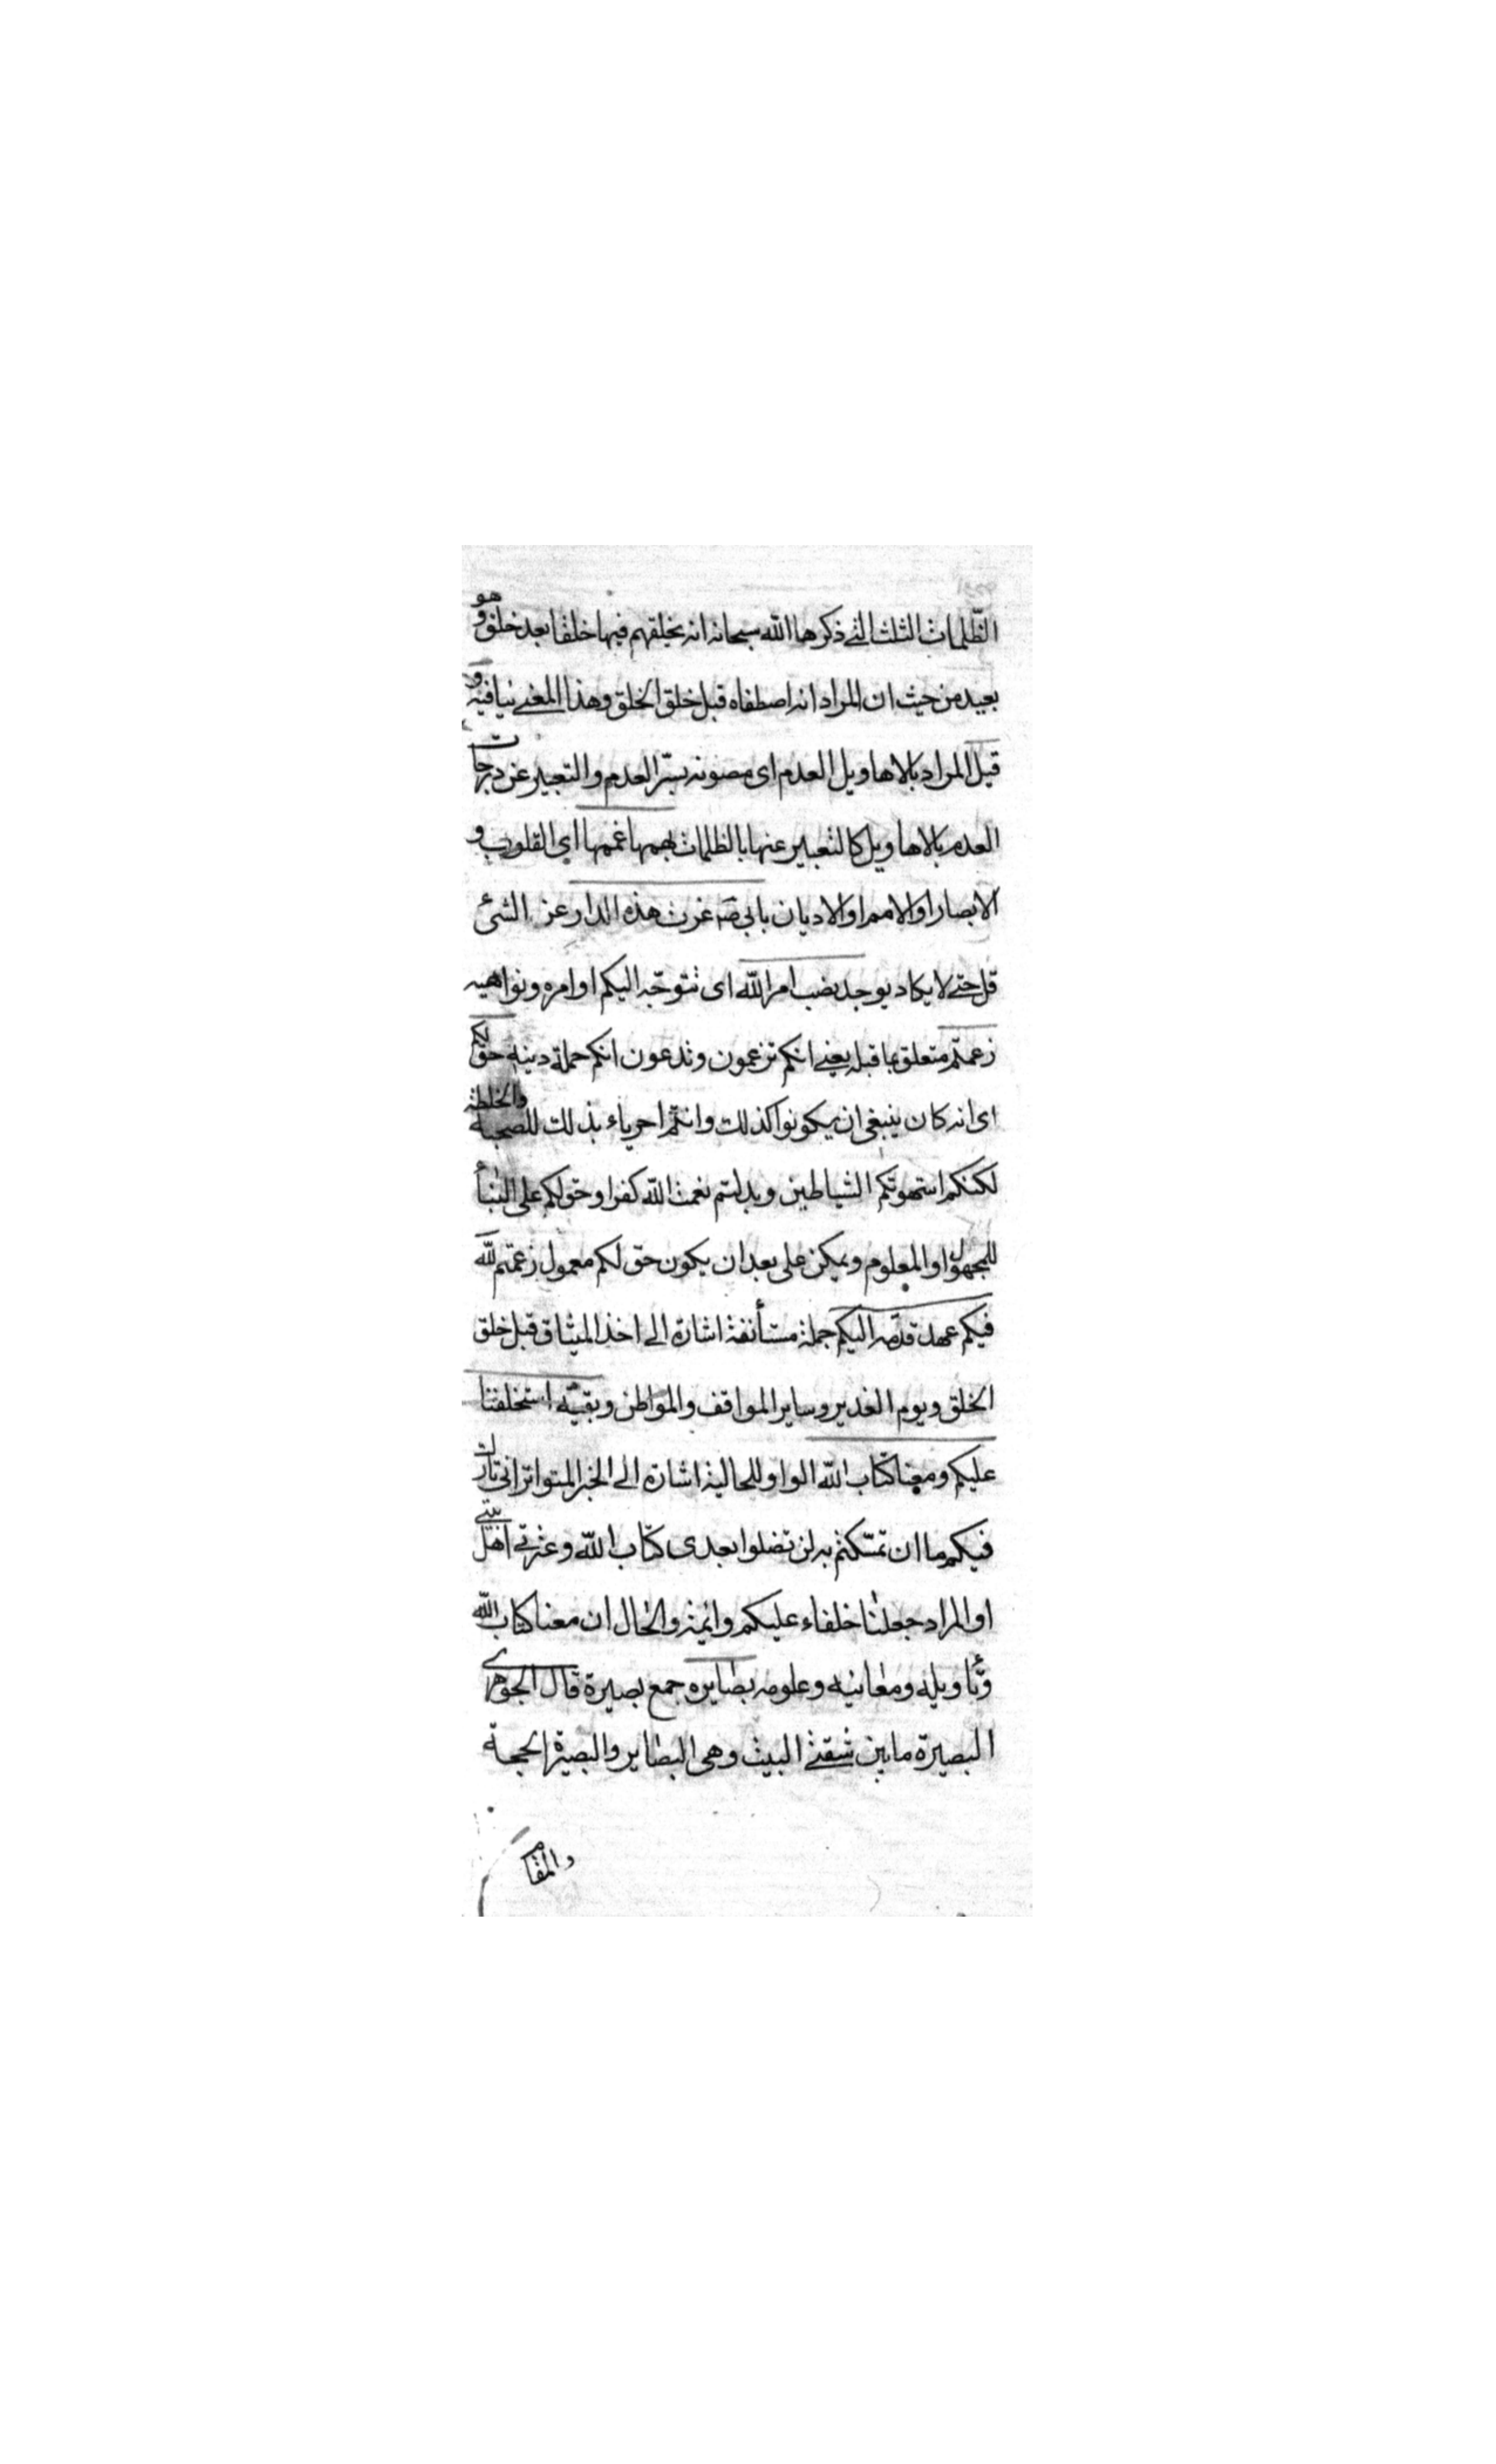 الظّلمات الثلث التي ذكرها الله سبحانه انه يخلقهم فيها خلقا بعد خلق وهو
بعيد من حيث ان المراد انه اصطفاه قبل خلق الخلق وهذا المعنى ينافيه و
قيل المراد بالاهاويل العدم اى مصونه بستر العدم والتعبير عن درجات
العدم بالاهاويل كالتعبير عنها بالظلمات بهمها غممها اى القلوب و
الابصار او الامم او الاديان بابى ص عزت هذه الدار عز الشئ
قل حتى لا يكاد يوجد نصب امر الله اى تتوجّه اليكم اوامره ونواهيه
زعمتم متعلق بما قبله يعنى انكم تزعمون وتدعون انكم حملة دينه حق لكم
اى انه كان ينبغى ان يكونوا كذلك وانتم احرياء بذلك للصحبة والخلطة
لكنكم استهوتكم الشياطين وبدلتم نعمت الله كفرا وحق لكم على البناء
للمجهول او المعلوم ويمكن على بعد ان يكون حق لكم معمول زعمتم لله
فيكم عهد قدمه اليكم جملة مستأنفة اشارة الى اخذ الميثاق قبل خلق
الخلق ويوم الغدير وساير المواقف والمواطن وبقيّه استخلفنا
عليكم ومعنا كتاب الله الواو للحالية اشارة الى الخبر المتواتر انى تارك
فيكم ما ان تمسّكتم به لن تضلوا بعدى كتاب الله وعترتى اهل بيتى
او المراد جعلنا خلفاء عليكم وائمة والحال ان معنا كتاب الله
وتأويله ومعانيه وعلومه بصايره جمع بصيرة قال الجوهرى
البصيرة ما بين شقتى البيت وهى البصاير والبصيرة الحجة